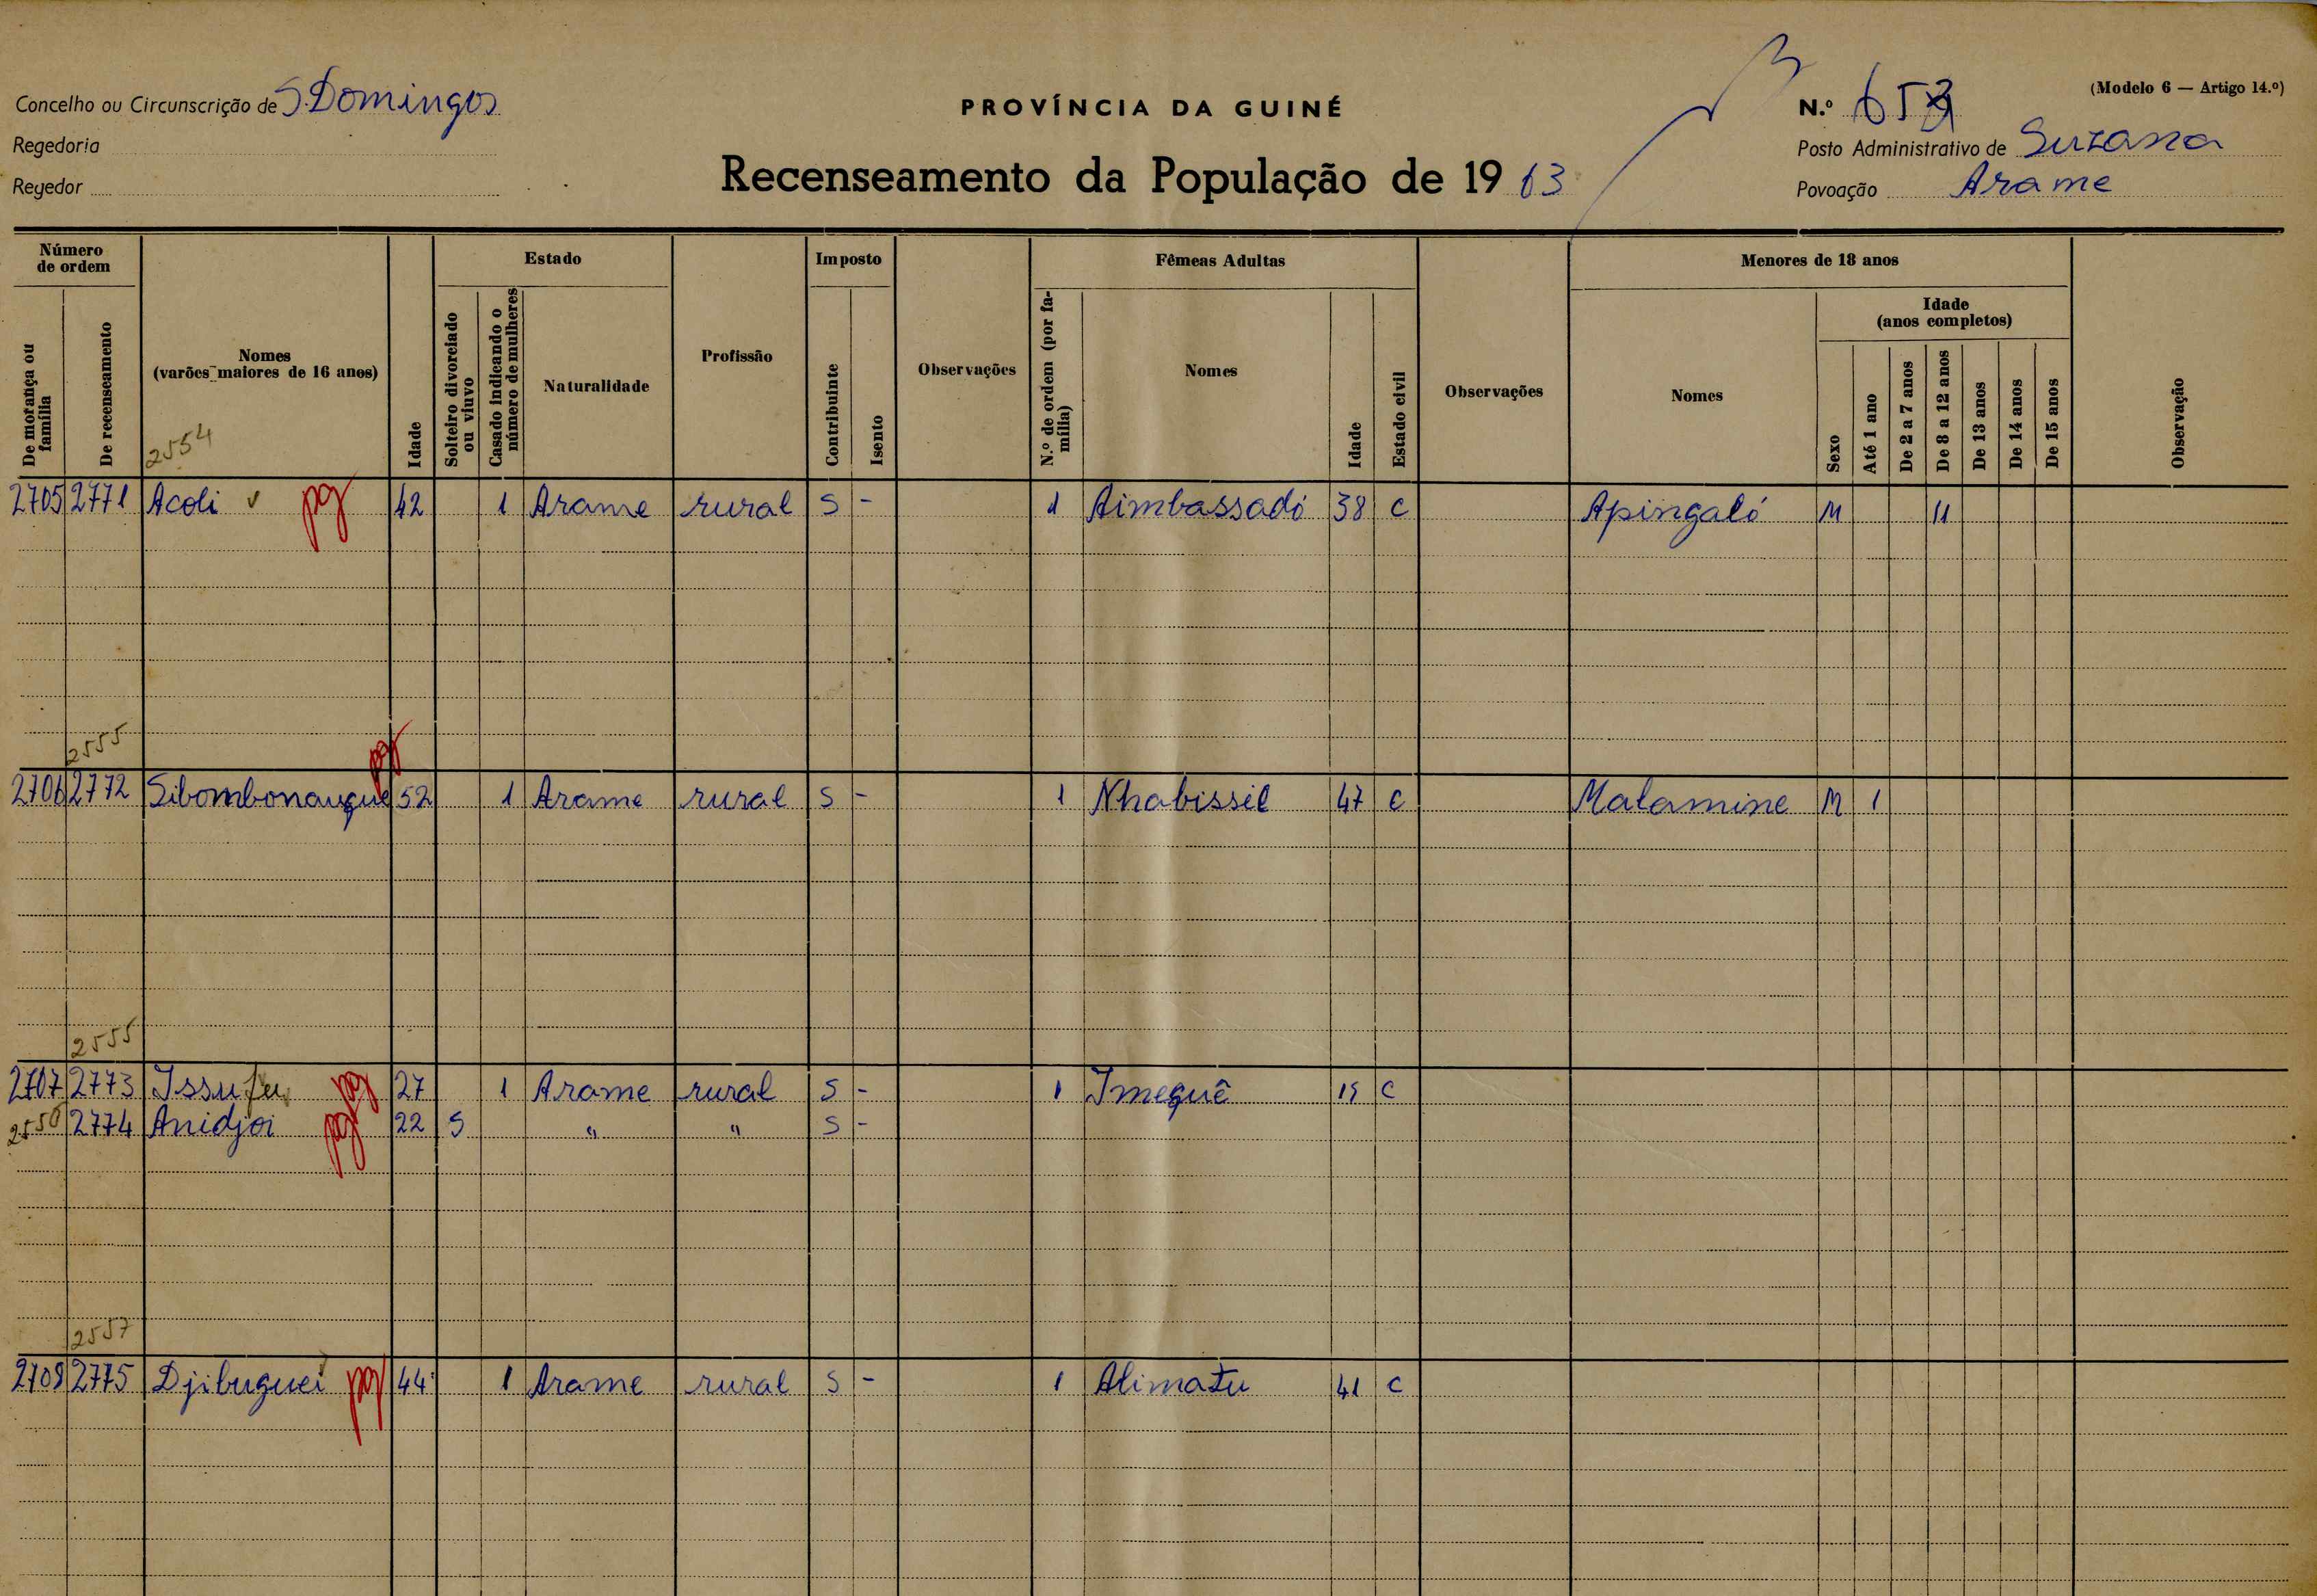 (Modelo 6 — Artigo 14.º)
Concelho ou Circunscrição de S. Domingos
PROVÍNCIA DA GUINÉ
N.º
Regedoria
Posto Administrativo de Suzana
Regedor
Recenseamento da População de 1963
Povoação Arame
Número de ordem
De morança ou família
De recenseamento
Nomes
(varões maiores de 16 anos)
Idade
Estado
Solteiro divorciado ou viuvo
Casado indicando o número de mulheres
Naturalidade
Profissão
Imposto
Contribuinte
Isento
Observações
Fêmeas Adultas
N.º de ordem (por família)
Nomes
Idade
Estado civil
Observações
Menores de 18 anos
Nomes
Idade
(anos completos)
Sexo
Até 1 ano
De 2 a 7 anos
De 8 a 12 anos
De 13 anos
De 14 anos
De 15 anos
Observação
2554
2705 2771 Acoli pg 42 1 Arame rural S - 1 Aimbassadó 38 C Apingaló M 11
2555 pg
2706 2772 Sibombonauque 52 1 Arame rural S - 1 Nhabissil 47 C Malamine M 1
2555
2707 2773 Issufu pg 27 1 Arame rural S - 1 Imequê 19 C
2774 Anidjoi pg 22 S " " S -
2557
2708 2775 Djibuguei pg 44 1 Arame rural S - 1 Alimatu 41 C